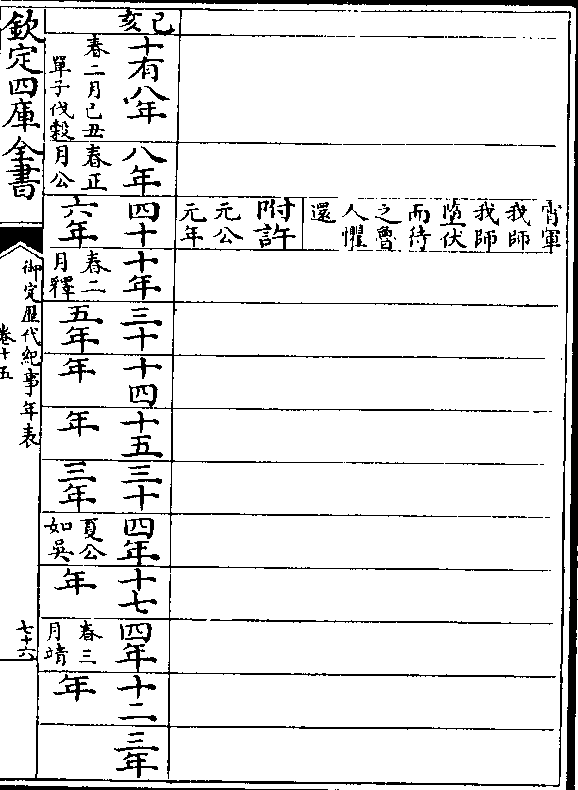 霄軍
我師
我師
墮伏
而待
之魯
人懼
還
附許
元公
元年
己亥
十有八年
春二月己丑
單子伐穀
八年
春正
月公
四十
六年
十年
春二
月釋
三十
五年
十四
年
十五
年
三十
三年
四年
夏公
如吳
十七
年
四年
春三
月靖
十二
年
三年
欽定四庫全書
御定歷代紀事年表
卷十五
七十六